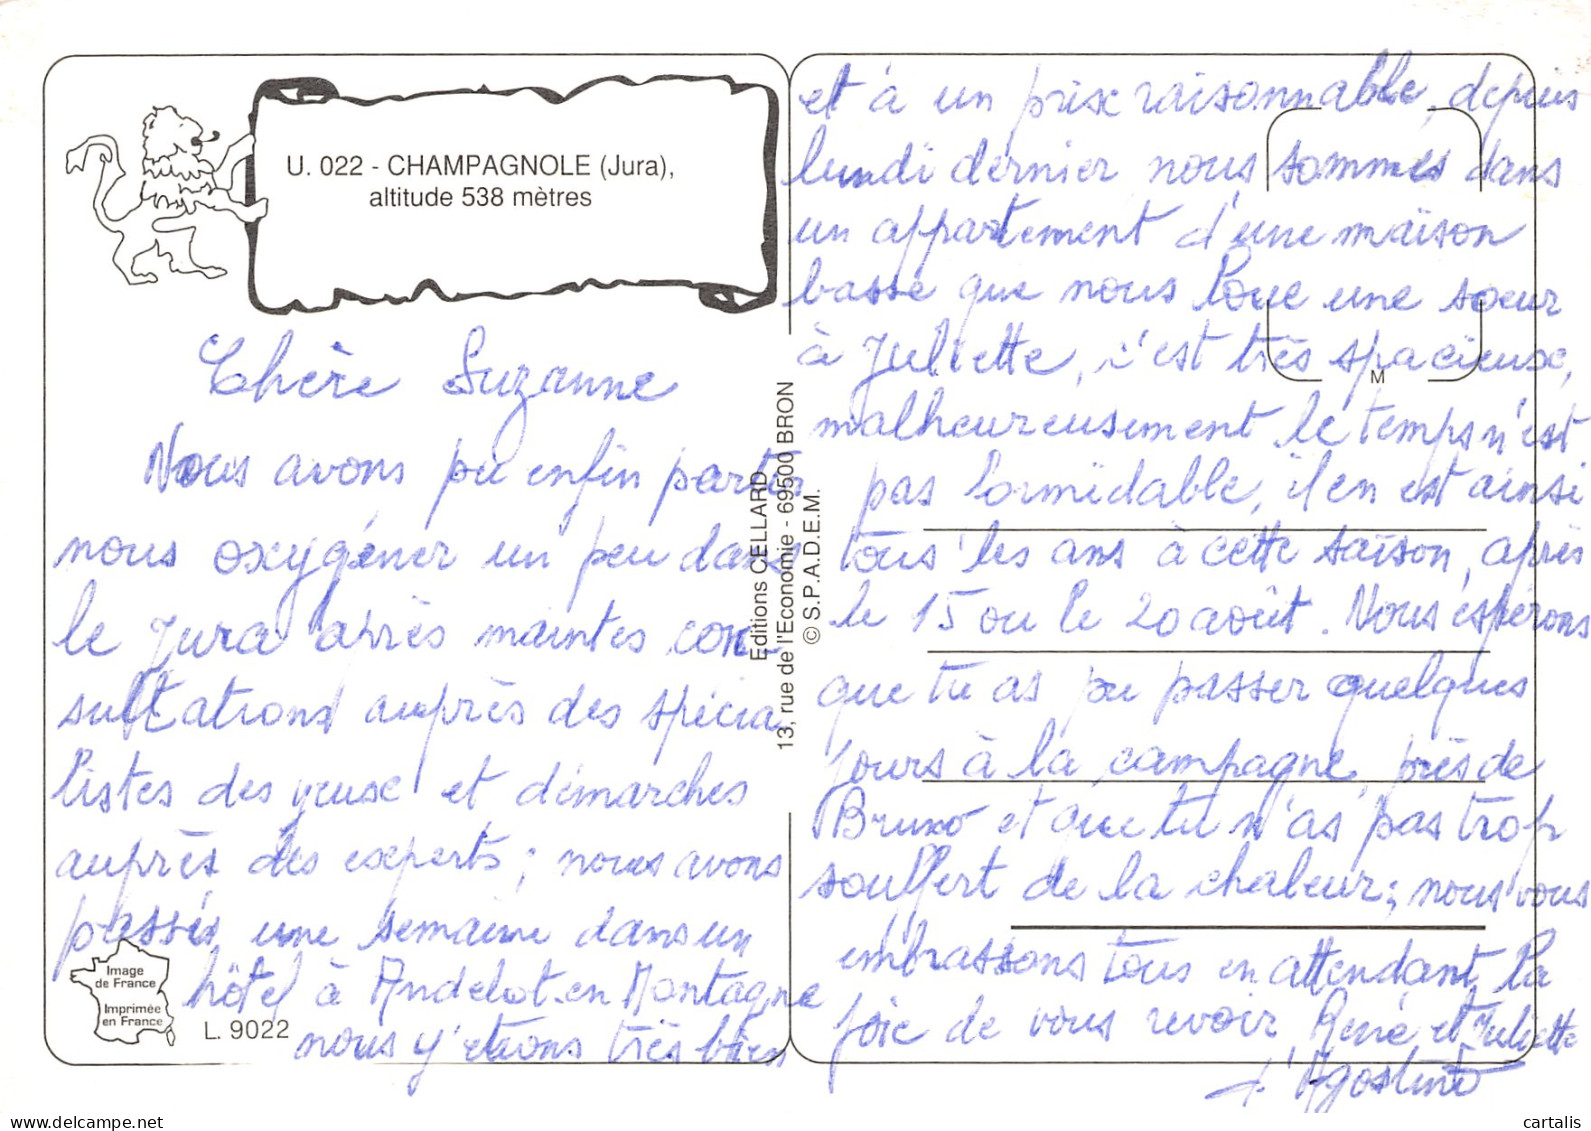 U. 022 - CHAMPAGNOLE (Jura),
altitude 538 mètres
Chère Suzanne
Nous avons pu enfin partir
nous oxygéner un peu dans
le Jura après maintes con-
sultations auprès des spécia
listes des yeux et démarches
auprès des experts ; nous avons
passés une semaine dans un
hôtel à Andelot-en Montagne
nous y'etions très bien
et à un prix raisonnable, depuis
lundi dernier nous sommes dans
un appartement d'une maison
basse que nous loue une soeur
à Juliette, c'est très spacieux,
malheureusement le temps n'est
pas formidable, il en est ainsi
tous les ans à cette saison, après
le 15 ou le 20 août. Nous espérons
que tu as pu passer quelques
jours à la campagne près de
Bruno et que tu n'as pas trop
souffert de la chaleur ; nous vous
embrassons tous en attendant la
joie de vous revoir. René et Juliette
d'Agostino
Editions CELLARD
13, rue de l'Economie - 69500 BRON
© S.P.A.D.E.M.
M
Image
de France
Imprimée
en France
L. 9022
www.delcampe.net
cartalis